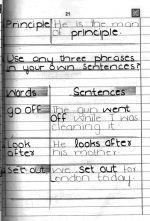 21
Principle He is the man
of principle.
Use any three phrases
in your own sentences?
Words Sentences
go off The gun went
off while I was
cleaning it.
Look He looks after
after his mother.
set out We set out for
London today.